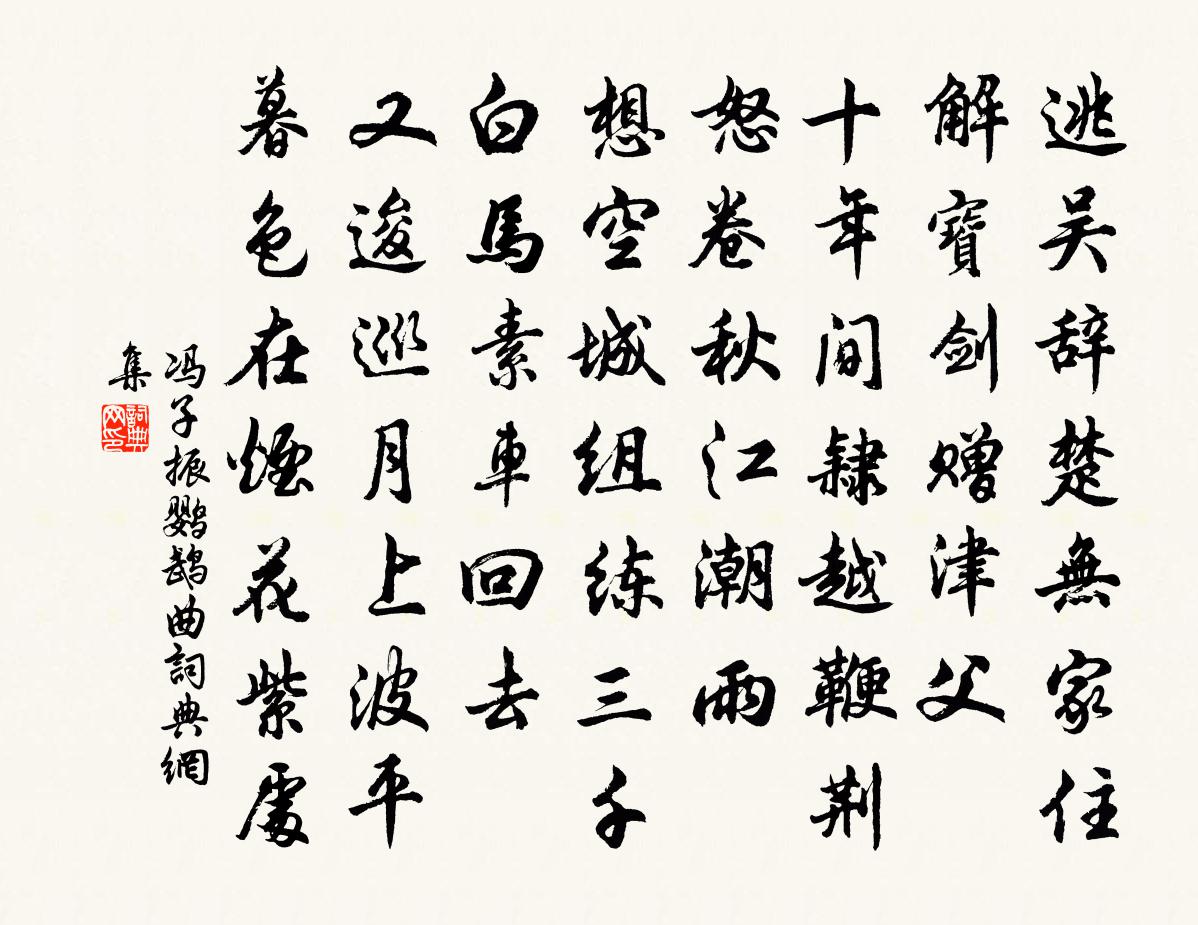 逃吴辞楚無家住
解寶剑赠津父
十年间隷越鞭荆
怒卷秋江潮雨
想空城组练三千
白馬素車回去
又逡巡月上波平
暮色在煙花紫處
冯子振鹦鹉曲詞典網
集
詞典
网印